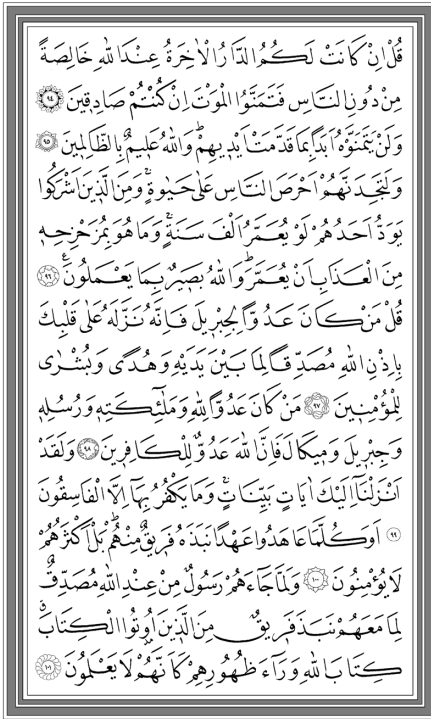 قُلْ اِنْ كَانَتْ لَكُمُ الدَّارُ الْاٰخِرَةُ عِنْدَ اللّٰهِ خَالِصَةً
مِنْ دُونِ النَّاسِ فَتَمَنَّوُا الْمَوْتَ اِنْ كُنْتُمْ صَادِقٖينَ ﴿٩٤﴾
وَلَنْ يَتَمَنَّوْهُ اَبَدًا بِمَا قَدَّمَتْ اَيْدٖيهِمْ وَاللّٰهُ عَلٖيمٌ بِالظَّالِمٖينَ ﴿٩٥﴾
وَلَتَجِدَنَّهُمْ اَحْرَصَ النَّاسِ عَلٰى حَيٰوةٍ وَمِنَ الَّذٖينَ اَشْرَكُوا
يَوَدُّ اَحَدُهُمْ لَوْ يُعَمَّرُ اَلْفَ سَنَةٍ وَمَا هُوَ بِمُزَحْزِحِهٖ
مِنَ الْعَذَابِ اَنْ يُعَمَّرَ وَاللّٰهُ بَصٖيرٌ بِمَا يَعْمَلُونَ ﴿٩٦﴾
قُلْ مَنْ كَانَ عَدُوًّا لِجِبْرٖيلَ فَاِنَّهُ نَزَّلَهُ عَلٰى قَلْبِكَ
بِاِذْنِ اللّٰهِ مُصَدِّقًا لِمَا بَيْنَ يَدَيْهِ وَهُدًى وَبُشْرٰى
لِلْمُؤْمِنٖينَ ﴿٩٧﴾ مَنْ كَانَ عَدُوًّا لِلّٰهِ وَمَلٰٓئِكَتِهٖ وَرُسُلِهٖ
وَجِبْرٖيلَ وَمٖيكَالَ فَاِنَّ اللّٰهَ عَدُوٌّ لِلْكَافِرٖينَ ﴿٩٨﴾ وَلَقَدْ
اَنْزَلْنَٓا اِلَيْكَ اٰيَاتٍ بَيِّنَاتٍ وَمَا يَكْفُرُ بِهَٓا اِلَّا الْفَاسِقُونَ
﴿٩٩﴾ اَوَكُلَّمَا عَاهَدُوا عَهْدًا نَبَذَهُ فَرٖيقٌ مِنْهُمْ بَلْ اَكْثَرُهُمْ
لَا يُؤْمِنُونَ ﴿١٠٠﴾ وَلَمَّا جَٓاءَهُمْ رَسُولٌ مِنْ عِنْدِ اللّٰهِ مُصَدِّقٌ
لِمَا مَعَهُمْ نَبَذَ فَرٖيقٌ مِنَ الَّذٖينَ اُوتُوا الْكِتَابَ
كِتَابَ اللّٰهِ وَرَٓاءَ ظُهُورِهِمْ كَاَنَّهُمْ لَا يَعْلَمُونَ ﴿١٠١﴾